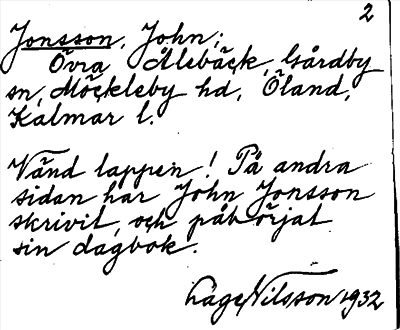 2
Jonsson, John;
Övra Ålebäck, Gårdby
sn, Möckleby hd, Öland,
Kalmar l.
Vänd lappen! På andra
sidan har John Jonsson
skrivit, och påbörjat
sin dagbok.
Låge Nilsson 1932